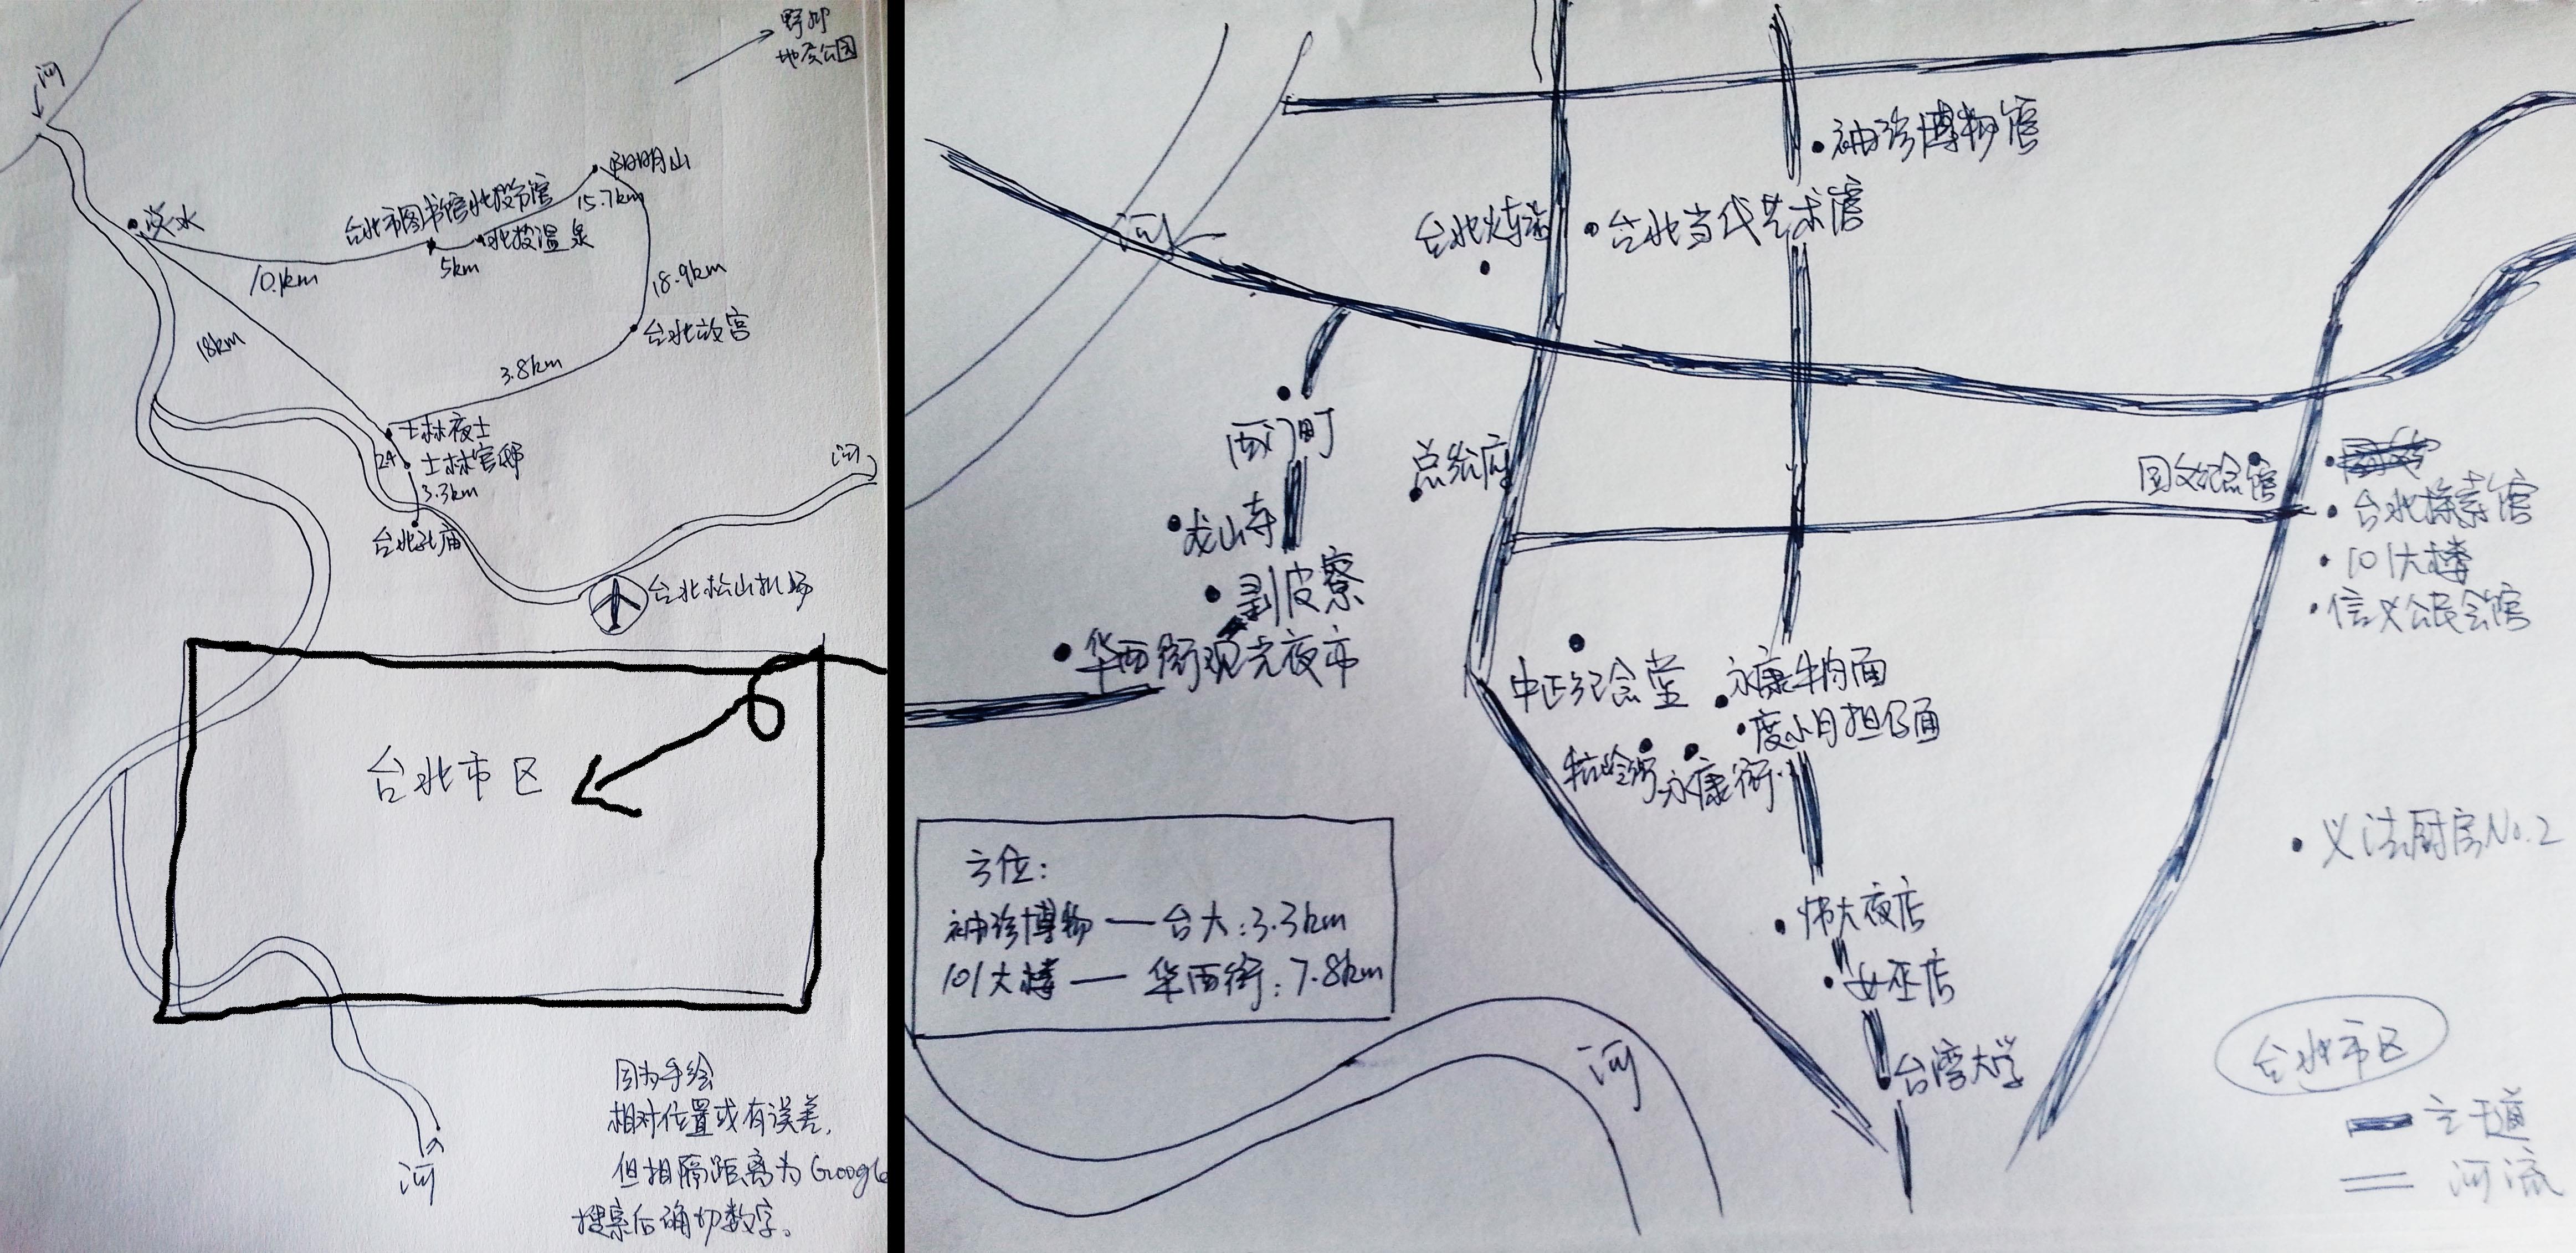 野柳
地质公园
河
阳明山
15.7km
台北市图书馆北投分馆
北投温泉
淡水
5km
10.1km
18.9km
台北故宫
18km
3.8km
士林夜士
士林官邸
3.3km
河
台北孔庙
台北松山机场
台北市区
因为手绘
相对位置或有误差,
但相隔距离为Google
搜索后确切数字。
河
袖珍博物馆
河
台北火车站
台北当代艺术馆
西门町
总统府
国父纪念馆
台北探索馆
龙山寺
101大楼
剥皮寮
信义公民会馆
华西街观光夜市
中正纪念堂
永康牛肉面
度小月担仔面
永康街
义法厨房No.2
方位:
袖珍博物—台大:3.3km
101大楼—华西街:7.8km
伟大夜店
女巫店
河
台湾大学
台北市区
主干道
河流